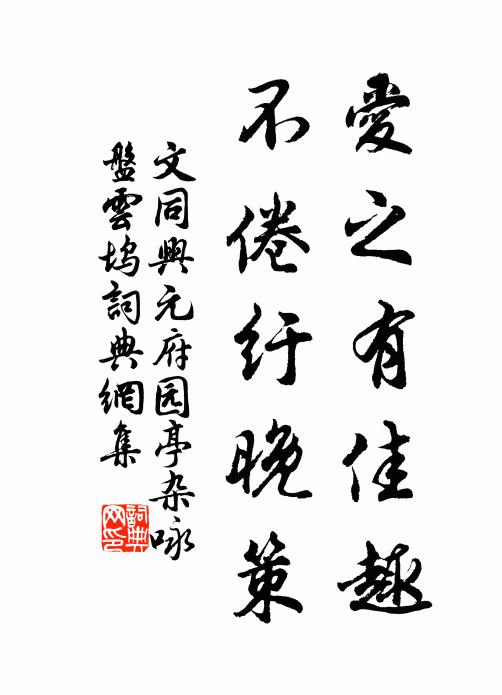 愛之有佳趣
不倦紆晚策
文同興元府园亭杂咏
盤雲塢詞典網集
詞典
网印